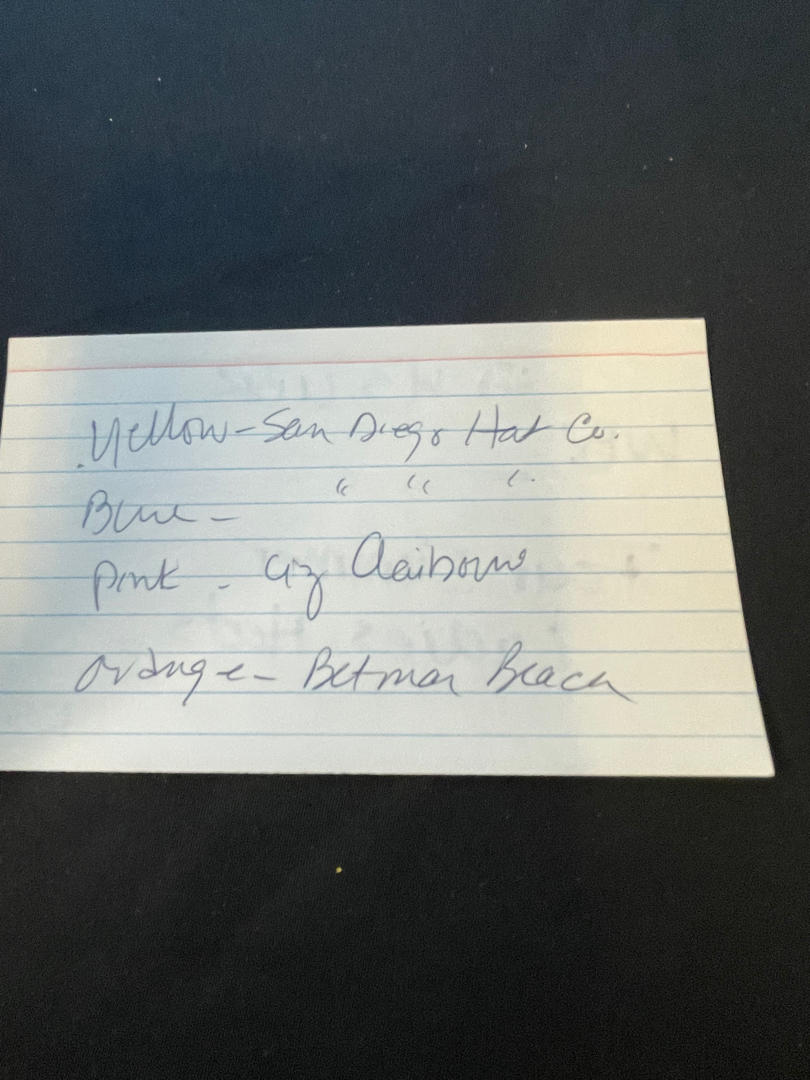 Yellow - San Diego Hat Co.
Blue - " " "
Pink - Liz Claiborne
Orange - Betmar Beach